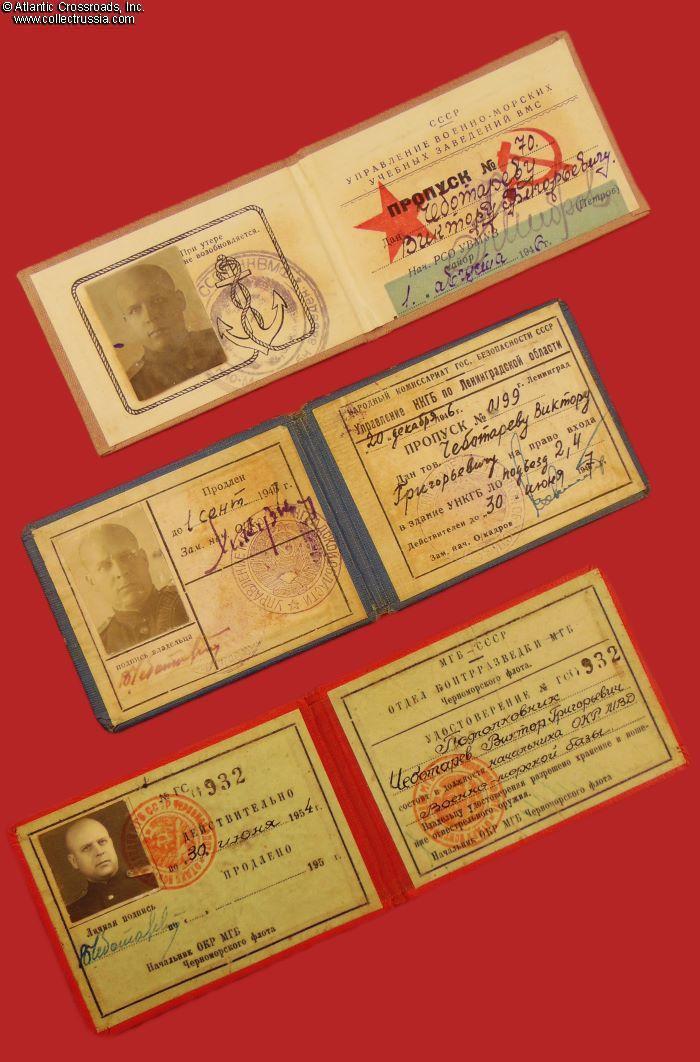 © Atlantic Crossroads, Inc.
www.collectrussia.com
При утере
не возобновляется.
СССР
УПРАВЛЕНИЕ ВОЕННО-МОРСКИХ
УЧЕБНЫХ ЗАВЕДЕНИЙ ВМС
ПРОПУСК № 70.
Дан Чеботареву
Виктору Григорьевичу.
Нач. РСО УВМУЗ
майор (Петров)
1. августа 1946 г.
Продлен
до 1 сент 1947
Зам. нач.
подпись владельца
НАРОДНЫЙ КОМИССАРИАТ ГОС. БЕЗОПАСНОСТИ СССР
Управление НКГБ по Ленинградской области
20 декабря 1946 г. г. Ленинград
ПРОПУСК № 0199
Дан тов. Чеботареву Виктору
Григорьевичу на право входа
в здание УНКГБ ЛО подъезд 2,4
Действителен до 30 июня 1947
Зам. нач. О/кадров
№ ГС 0932
ДЕЙСТВИТЕЛЬНО
по 30 июня 1954 г.
ПРОДЛЕНО
по « » 195 г.
Личная подпись
Чеботарев
Начальник ОКР МГБ
Черноморского флота
МГБ—СССР
ОТДЕЛ КОНТРРАЗВЕДКИ МГБ
Черноморского флота.
УДОСТОВЕРЕНИЕ № ГС 0932
Подполковник
Чеботарев Виктор Григорьевич
состоит в должности начальника ОКР МВД
Военно-морской базы
Владельцу удостоверения разрешено хранение и ноше-
ние огнестрельного оружия.
Начальник ОКР МГБ Черноморского флота